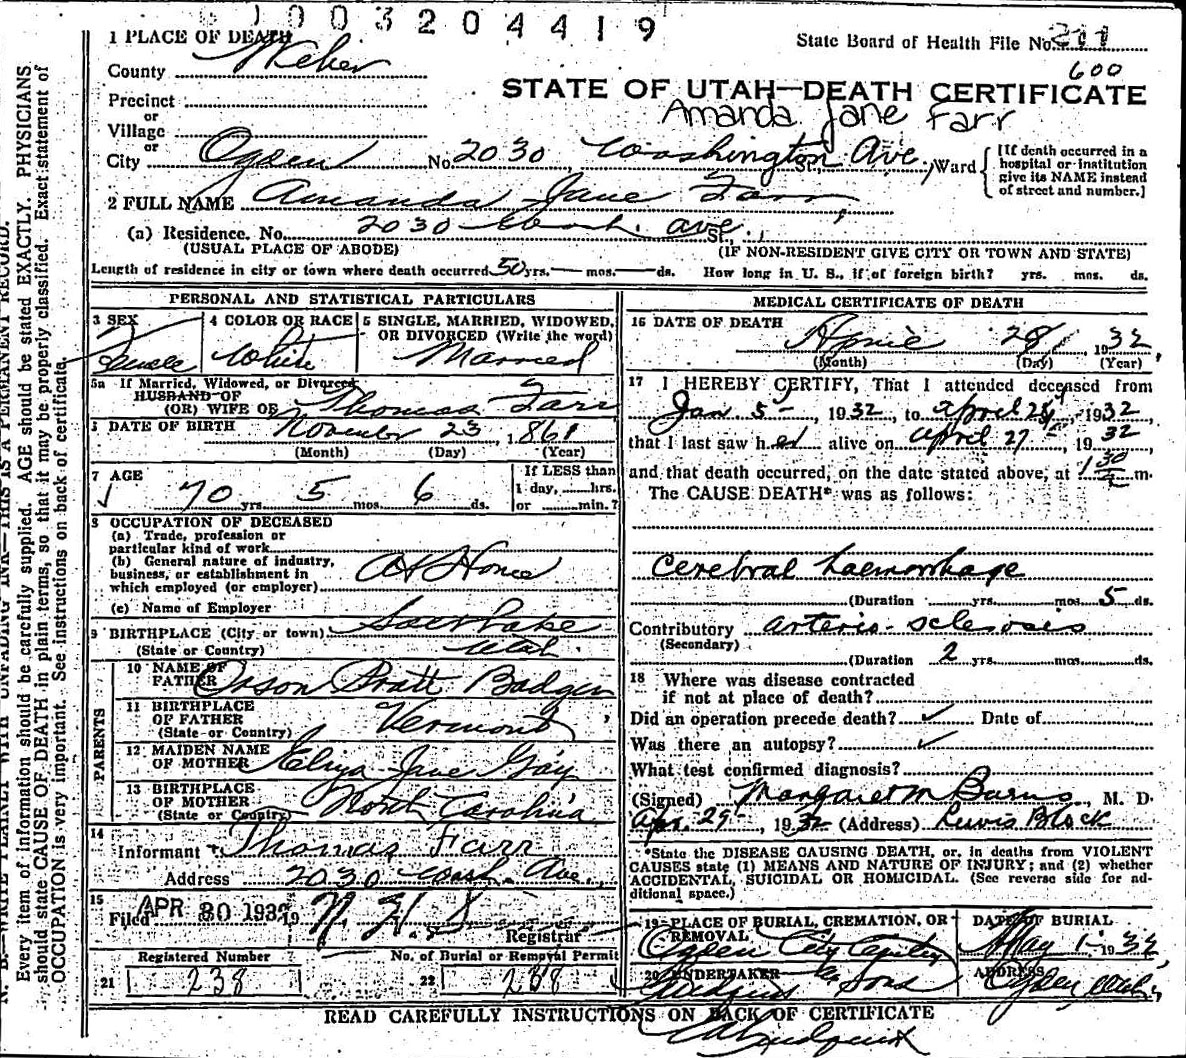 1003204419
1 PLACE OF DEATH
State Board of Health File No. 211
County Weber
600
STATE OF UTAH—DEATH CERTIFICATE
Precinct
Amanda Jane Farr
or
Village
or
City Ogden No. 2030 Washington Ave. St., Ward
[If death occurred in a
hospital or institution
give its NAME instead
of street and number.]
2 FULL NAME Amanda Jane Farr,
(a) Residence. No. 2030 Wash. Ave. St.,
(USUAL PLACE OF ABODE) (IF NON-RESIDENT GIVE CITY OR TOWN AND STATE)
Length of residence in city or town where death occurred 50 yrs. — mos. — ds. How long in U. S., if of foreign birth? yrs. mos. ds.
PERSONAL AND STATISTICAL PARTICULARS
3 SEX
Female
4 COLOR OR RACE
White
5 SINGLE, MARRIED, WIDOWED,
OR DIVORCED (Write the word)
Married
5a If Married, Widowed, or Divorced
HUSBAND OF
(OR) WIFE OF Thomas Farr
6 DATE OF BIRTH November 23, 1861
(Month) (Day) (Year)
7 AGE
70 yrs. 5 mos. 6 ds.
If LESS than
1 day, hrs.
or min.?
8 OCCUPATION OF DECEASED
(a) Trade, profession or
particular kind of work
(b) General nature of industry,
business, or establishment in
which employed (or employer)
At Home
(c) Name of Employer
9 BIRTHPLACE (City or town) Salt Lake
(State or Country) Utah.
PARENTS
10 NAME OF
FATHER Orson Pratt Badger
11 BIRTHPLACE
OF FATHER
(State or Country) Vermont
12 MAIDEN NAME
OF MOTHER Eliza Jane Gay
13 BIRTHPLACE
OF MOTHER
(State or Country) North Carolina
14
Informant Thomas Farr
Address 2030 Wash. Ave.,
15
Filed APR 30 1932 19
Registrar
Registered Number No. of Burial or Removal Permit
21 238 22 238
MEDICAL CERTIFICATE OF DEATH
16 DATE OF DEATH
April 28, 1932,
(Month) (Day) (Year)
17 I HEREBY CERTIFY, That I attended deceased from
Jan 5-, 1932, to April 28, 1932,
that I last saw her alive on April 27, 1932
and that death occurred, on the date stated above, at 1 30 m.
The CAUSE DEATH* was as follows:
Cerebral haemorrhage
(Duration yrs. mos. 5 ds.
Contributory arterio-sclerosis
(Secondary)
(Duration 2 yrs. mos. ds.
18 Where was disease contracted
if not at place of death?
Did an operation precede death? ✓ Date of
Was there an autopsy? ✓
What test confirmed diagnosis?
(Signed) Margaret M Burns, M. D.
Apr. 29, 1932 (Address) Lewis Block
*State the DISEASE CAUSING DEATH, or, in deaths from VIOLENT
CAUSES state (1) MEANS AND NATURE OF INJURY; and (2) whether
ACCIDENTAL, SUICIDAL OR HOMICIDAL. (See reverse side for ad-
ditional space.)
19 PLACE OF BURIAL, CREMATION, OR
REMOVAL
Ogden City Cemetery
DATE OF BURIAL
May 1- 1932,
20 UNDERTAKER
& Sons
ADDRESS
Ogden, Utah,
READ CAREFULLY INSTRUCTIONS ON BACK OF CERTIFICATE
N. B.—WRITE PLAINLY WITH UNFADING INK—THIS IS A PERMANENT RECORD.
Every item of information should be carefully supplied. AGE should be stated EXACTLY. PHYSICIANS
should state CAUSE OF DEATH in plain terms, so that it may be properly classified. Exact statement of
OCCUPATION is very important. See instructions on back of certificate.